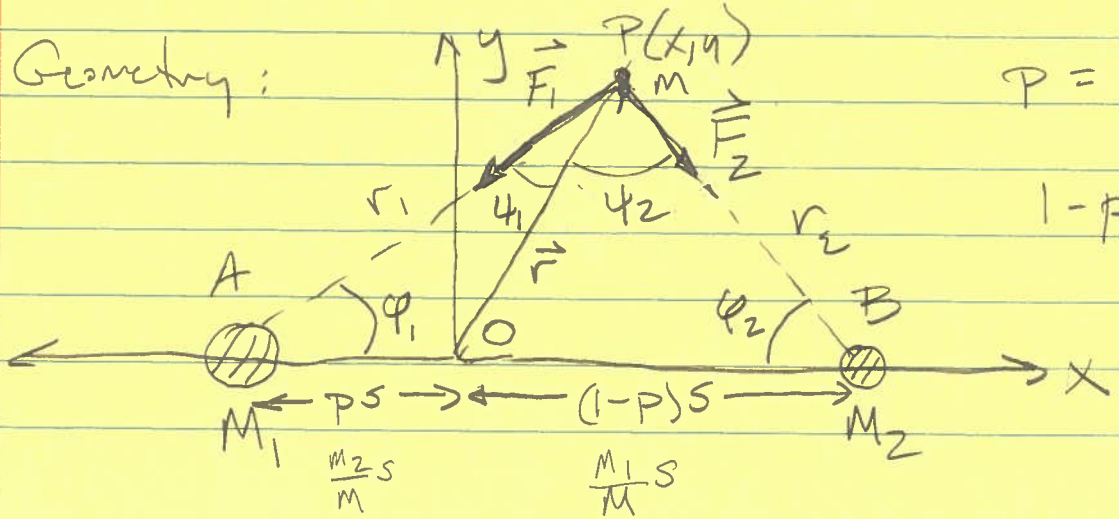 Geometry:
y
P(x,y)
m
P =
F⃗₁
F⃗₂
1-P
r₁
ψ₁
ψ₂
r⃗
r₂
A
φ₁
O
φ₂
B
x
ps
(1-p)s
M₁
M₂
m₂/M s
M₁/M s